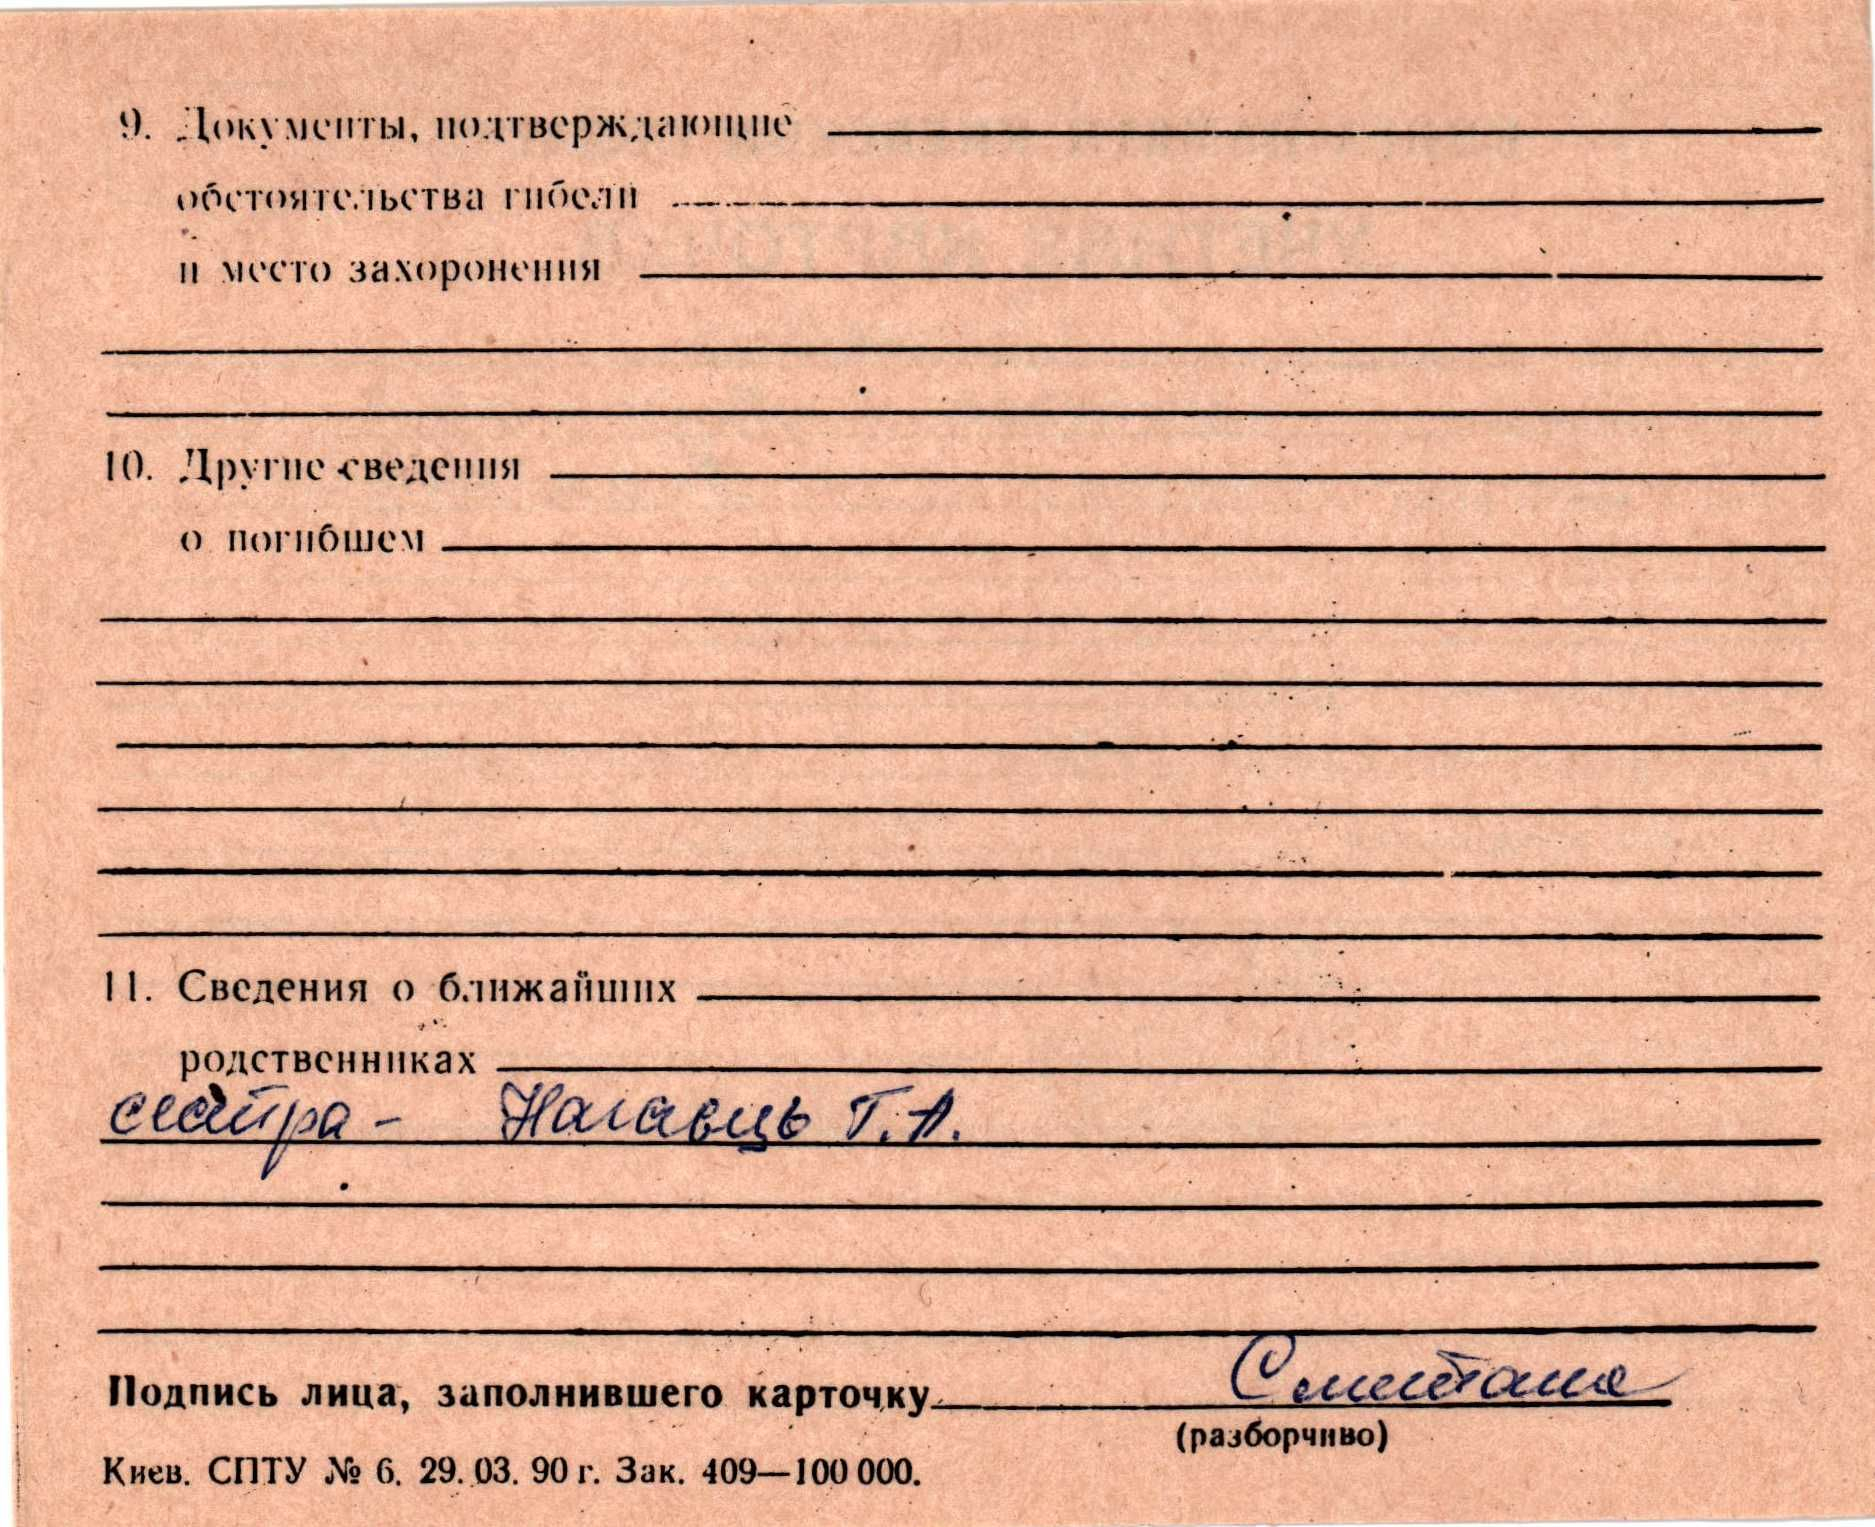 9. Документы, подтверждающие
обстоятельства гибели
и место захоронения
10. Другие сведения
о погибшем
11. Сведения о ближайших
родственниках
сестра - Нагаець Т.А.
Подпись лица, заполнившего карточку
(разборчиво)
Киев. СПТУ № 6. 29. 03. 90 г. Зак. 409—100 000.